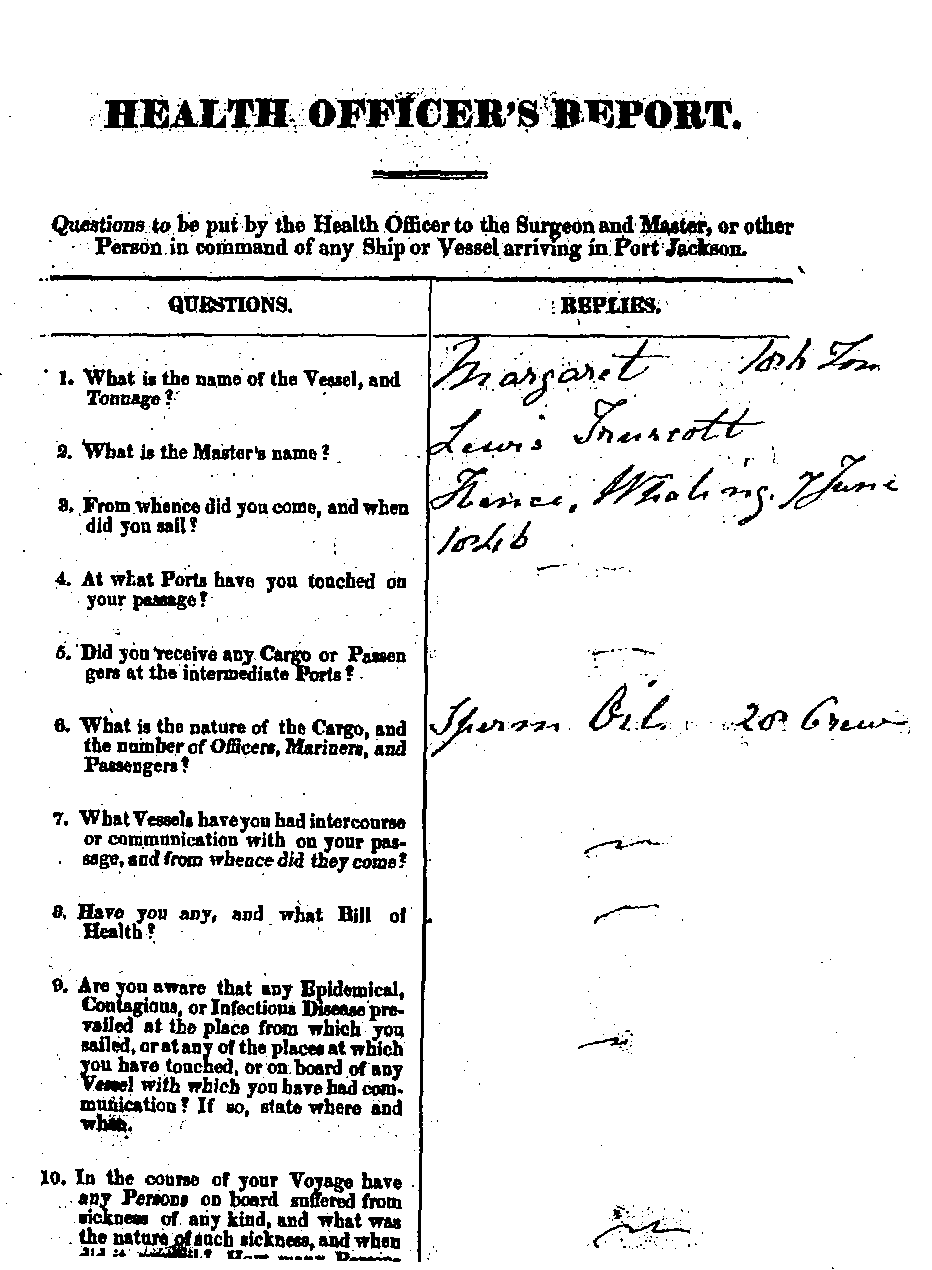 HEALTH OFFICER'S REPORT.
Questions to be put by the Health Officer to the Surgeon and Master, or other
Person in command of any Ship or Vessel arriving in Port Jackson.
QUESTIONS.
REPLIES.
1. What is the name of the Vessel, and
Tonnage?
Margaret Ton
2. What is the Master's name?
Lewis Truscott
3. From whence did you come, and when
did you sail?
Hence, Whaling, 7 June
4. At what Ports have you touched on
your passage?
5. Did you receive any Cargo or Passen
gers at the intermediate Ports?
6. What is the nature of the Cargo, and
the number of Officers, Mariners, and
Passengers?
Sperm Oil Crew
7. What Vessels have you had intercourse
or communication with on your pas-
sage, and from whence did they come?
8. Have you any, and what Bill of
Health?
9. Are you aware that any Epidemical,
Contagious, or Infectious Disease pre-
vailed at the place from which you
sailed, or at any of the places at which
you have touched, or on board of any
Vessel with which you have had com-
munication? If so, state where and
when.
10. In the course of your Voyage have
any Persons on board suffered from
sickness of any kind, and what was
the nature of such sickness, and when